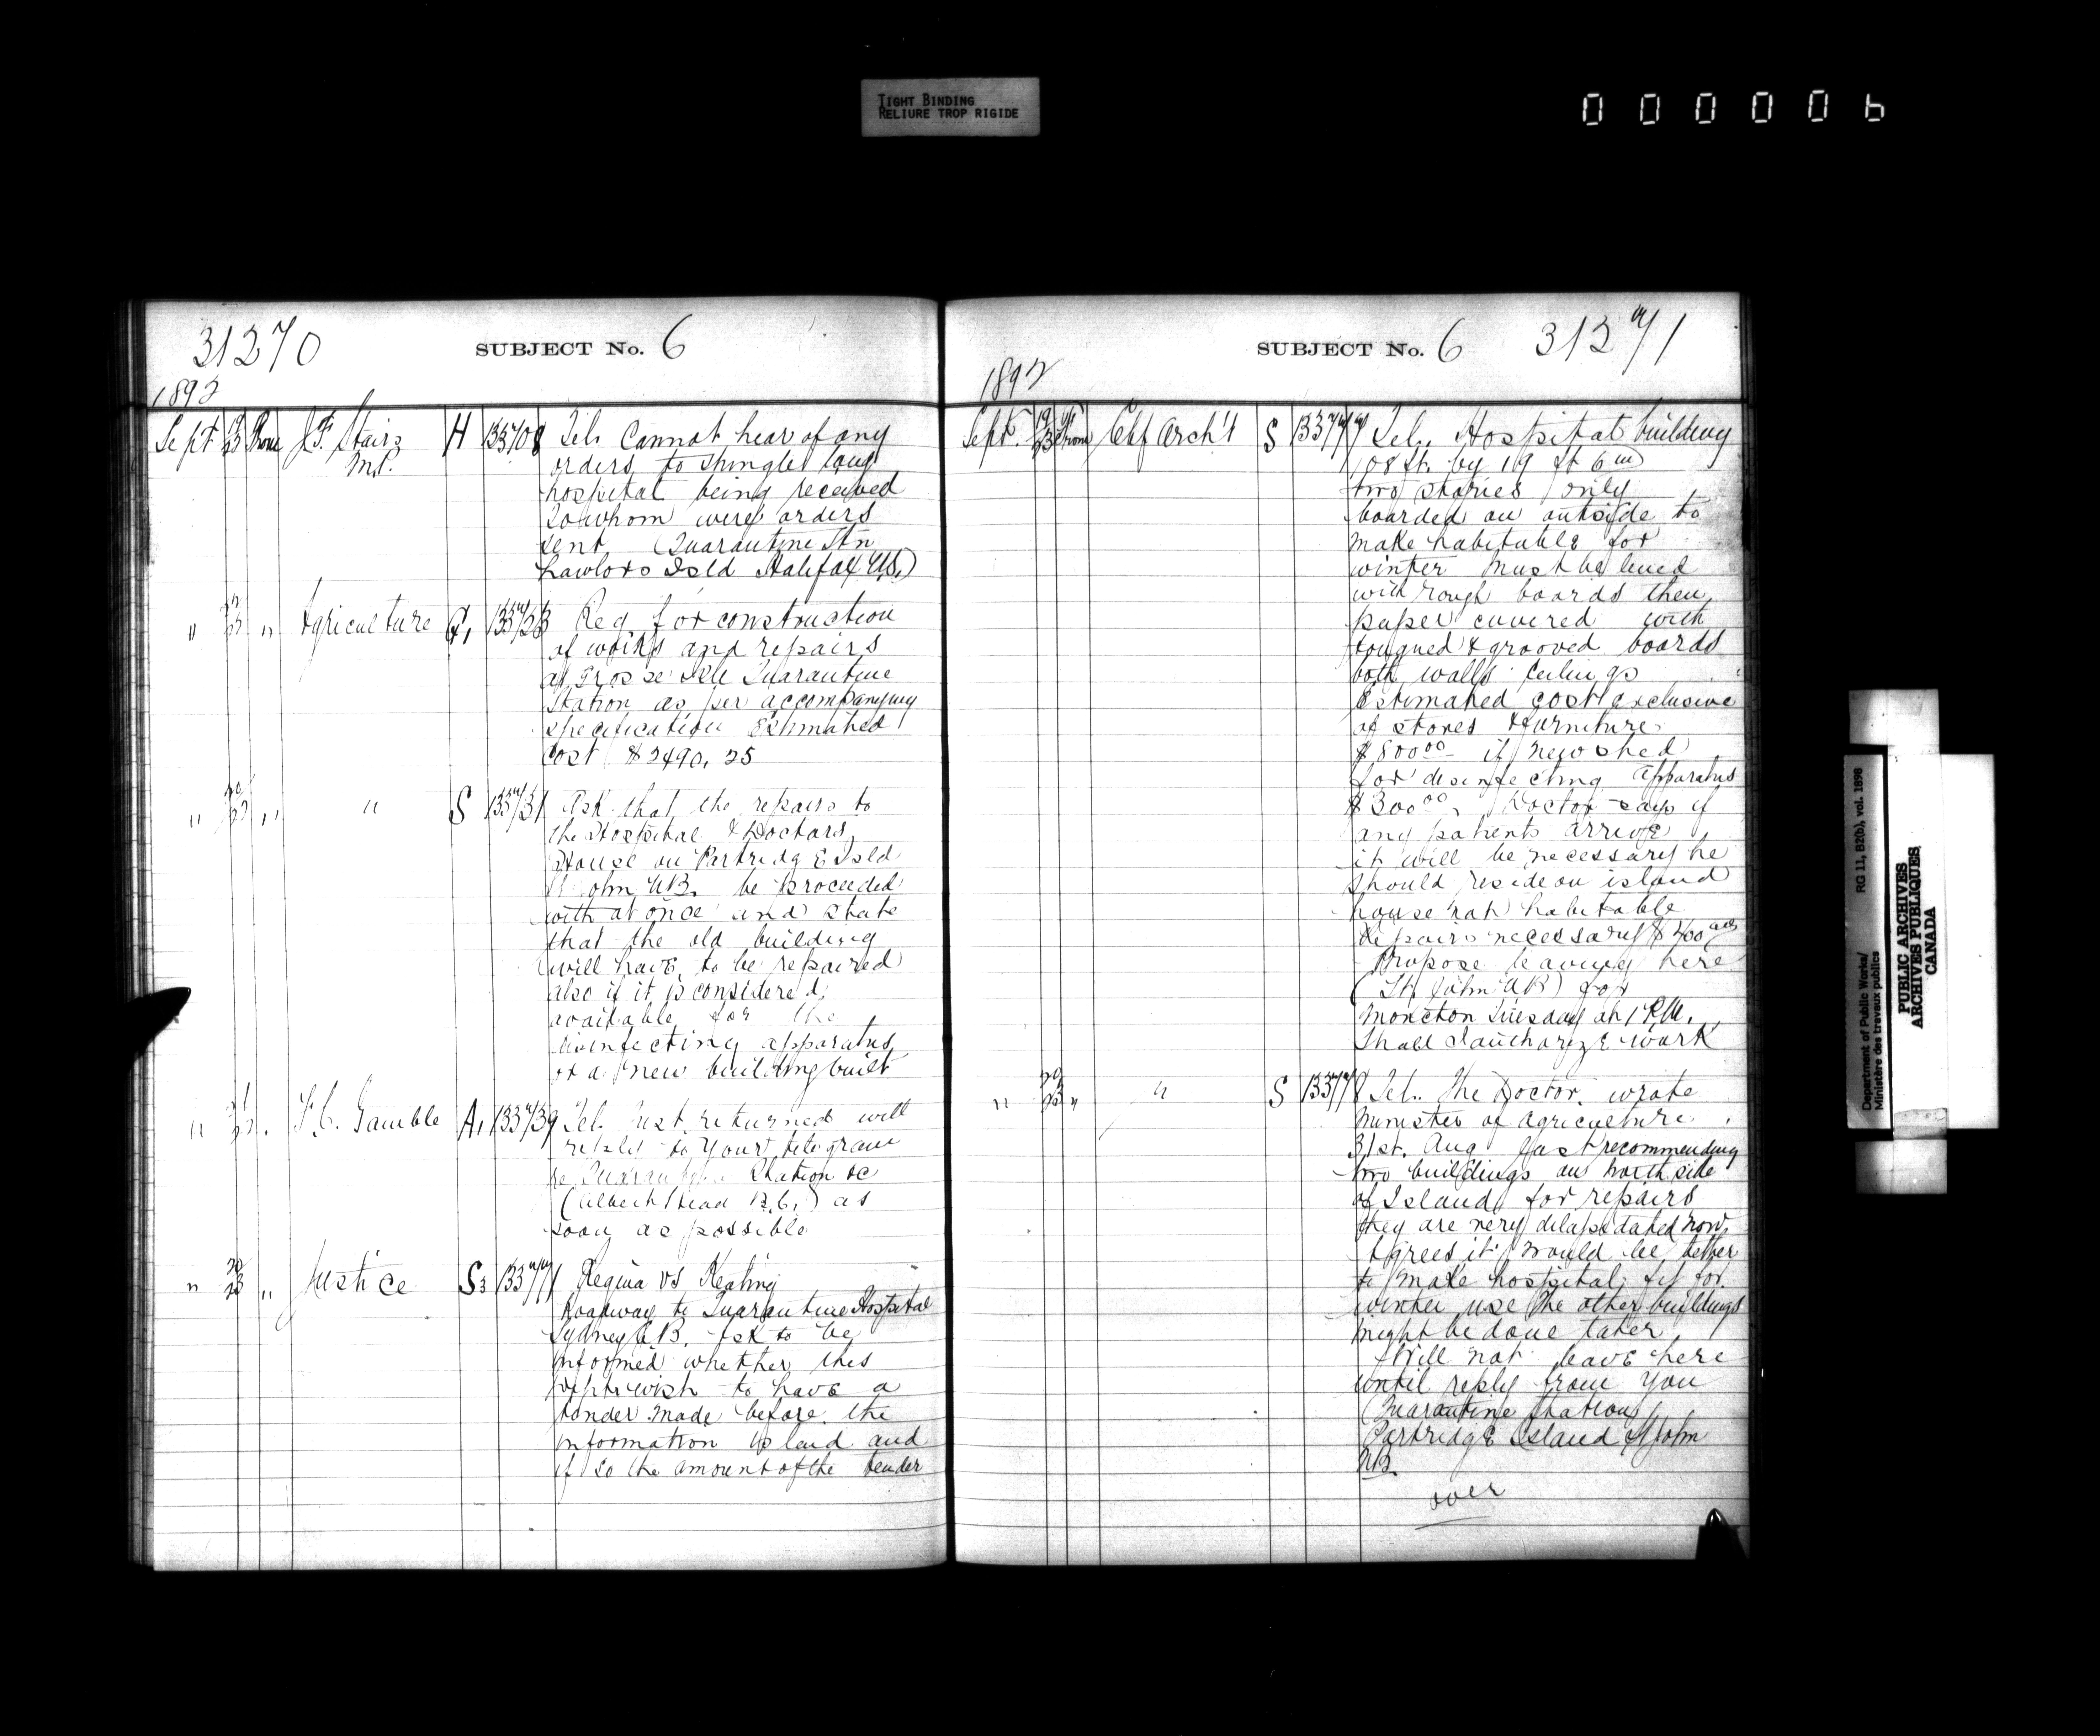 TIGHT BINDING
RELIURE TROP RIGIDE
000006
31270
SUBJECT No. 6
1892
Sept 23 From J.F. Stairs H 133708 Tel. Cannot hear of any
M.P. orders to shingle long
hospital being received
To whom were orders
sent (Quarantine Stn
Lawlors Isld Halifax N.S.)
" " Agriculture G, 133723 Req. for construction
of works and repairs
at Grosse Isle Quarantine
Station as per accompanying
specification Estimated
Cost $2490.25
" " " S 133731 Ask that the repairs to
the Hospital & Doctors
House on Partridge Isld
St John N.B. be proceeded
with at once and state
that the old building
will have to be repaired
also if it is considered
available for the
disinfecting apparatus
or a new building built
" F.C. Gamble A, 133739 Tel. Just returned will
reply to your telegram
re Quarantine Station &c
(Albert Head B.C.) as
soon as possible
" 23 " Justice S3 133771 Regina vs Keating
Roadway to Quarantine Hospital
Sydney C.B. Ask to be
informed whether this
Dept wish to have a
tender made before the
information is laid and
if so the amount of the tender
SUBJECT No. 6 31271
1892
Sept. 19 23 From Chf Arch't S 133777 Tel. Hospital building
108 ft. by 19 ft 6 in
two stories only
boarded on outside to
make habitable for
winter must be lined
with rough boards then
paper covered with
tongued & grooved boards
both walls ceilings
Estimated cost exclusive
of stoves & furniture
$800.00 if new shed
for disinfecting apparatus
$300.00, Doctor says if
any patients arrive
it will be necessary he
should reside on island
house not habitable
Repairs necessary $400.00
Propose leaving here
(St. John N.B.) for
Moncton Tuesday at 1 P.M.
Shall I authorize work
" 20 23 " " S 133778 Tel. The Doctor wrote
Minister of agriculture
31st. Aug last recommending
two buildings on north side
of Island for repairs
they are very dilapidated now,
Agrees it would be better
to make hospital fit for
winter use The other buildings
might be done later
Will not leave here
until reply from you
(Quarantine Station
Partridge Island St John
NB.
over
Department of Public Works/
Ministère des travaux publics
RG 11, B2(b), vol. 1898
PUBLIC ARCHIVES
ARCHIVES PUBLIQUES
CANADA